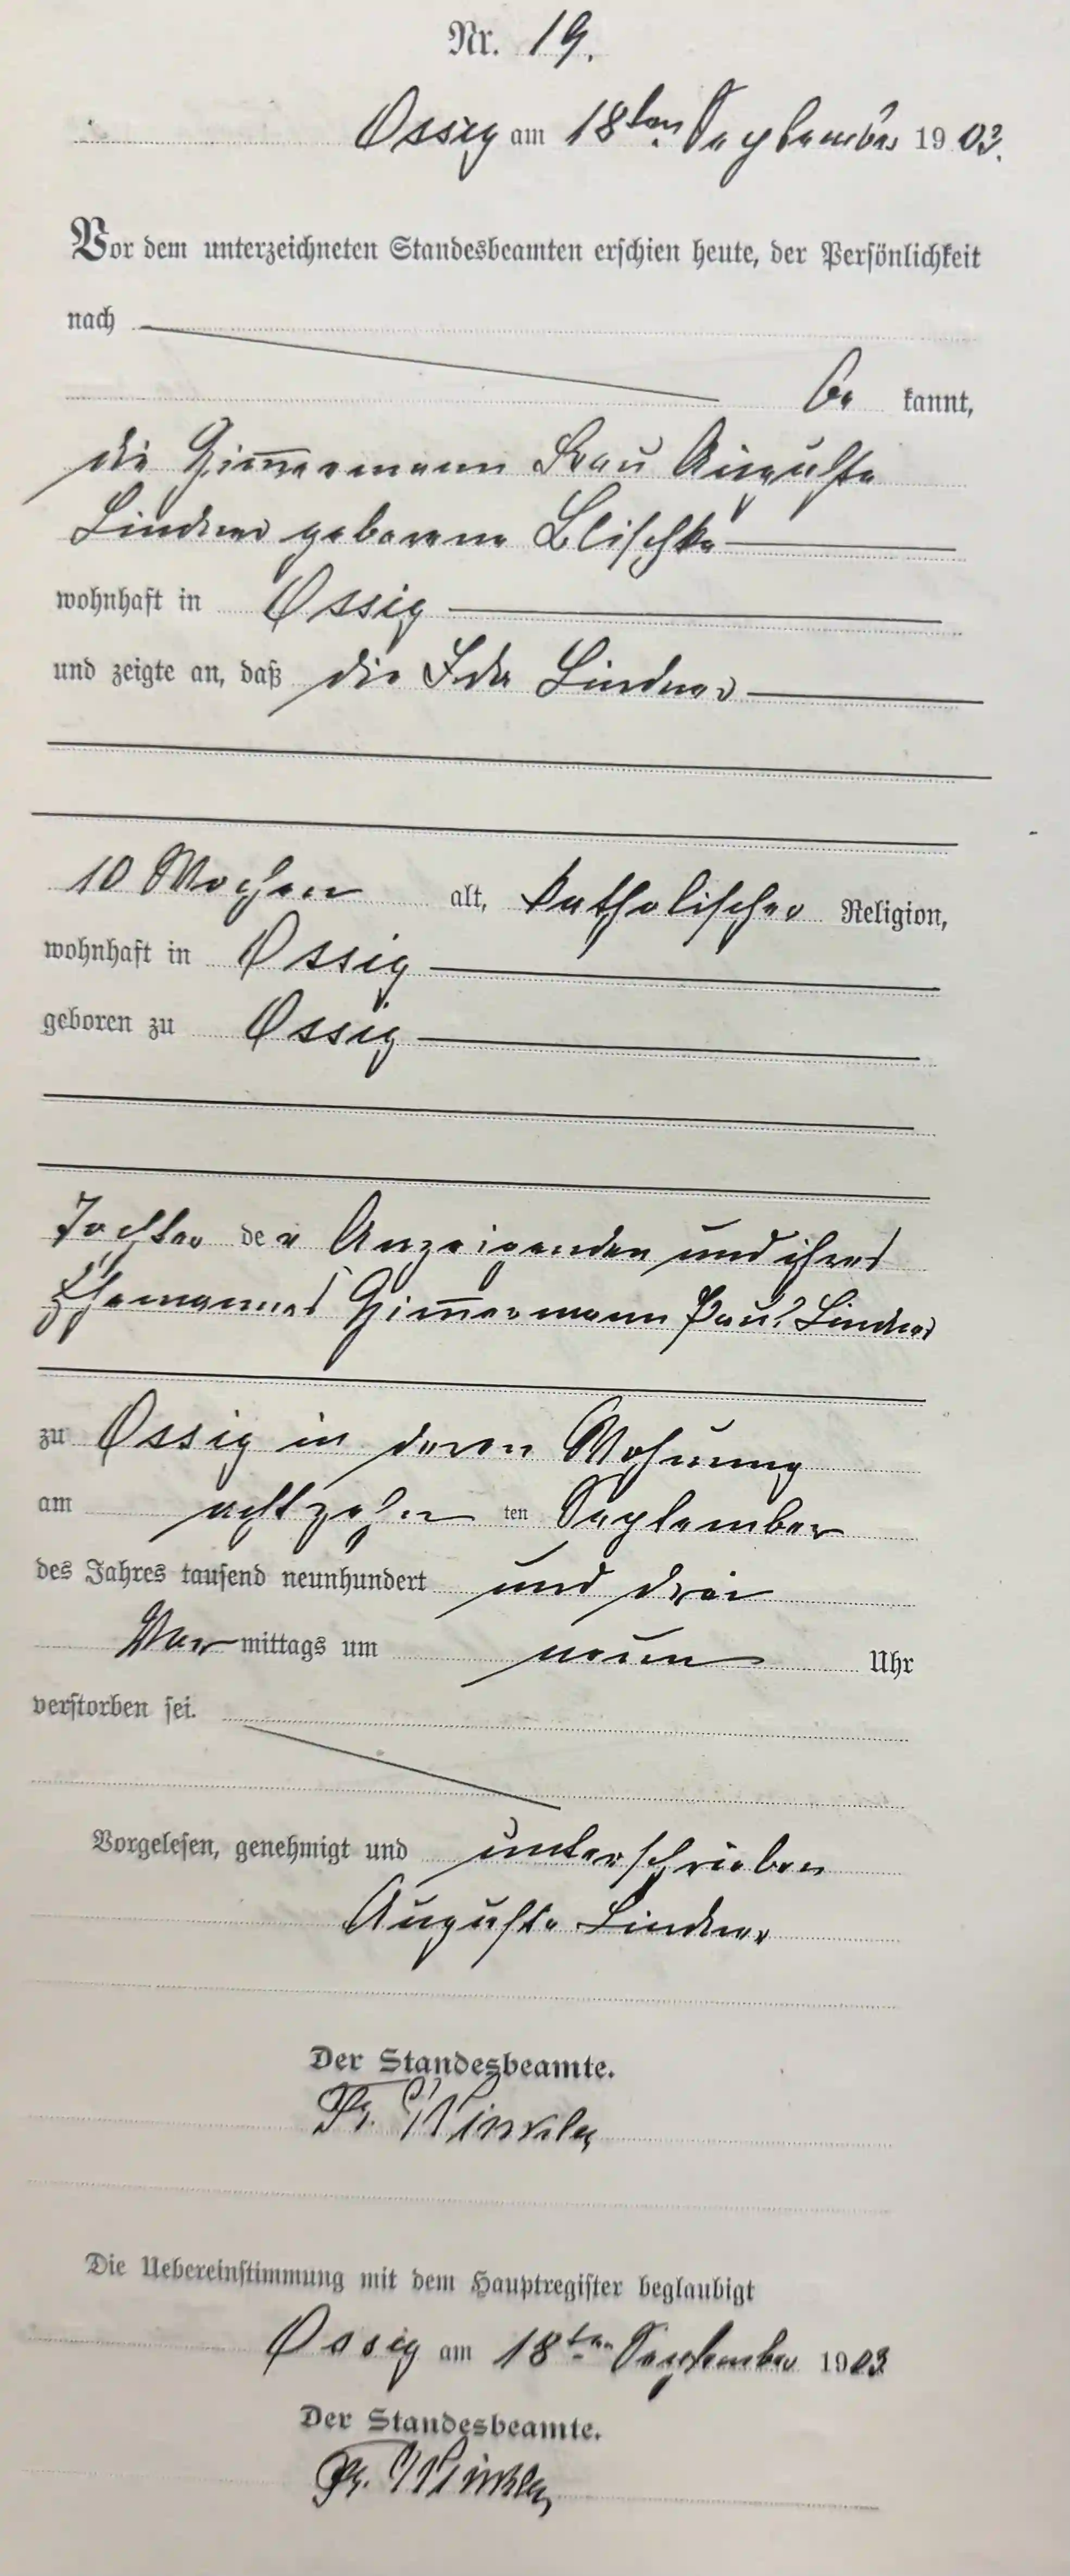 Nr. 19.
Ossig am 18ten September 1903.
Vor dem unterzeichneten Standesbeamten erschien heute, der Persönlichkeit
nach
be kannt,
die Zim̅ermann Frau Auguste
Lindner geborene Blischke
wohnhaft in Ossig
und zeigte an, daß die Ida Lindner
10 Wochen alt, katholischer Religion,
wohnhaft in Ossig
geboren zu Ossig
Tochter der Anzeigenden und ihres
Ehemannes Zim̅ermann Paul Lindner
zu Ossig in deren Wohnung
am achtzehn ten September
des Jahres tausend neunhundert und drei
Vor mittags um neun Uhr
verstorben sei.
Vorgelesen, genehmigt und unterschrieben
Auguste Lindner
Der Standesbeamte.
Fr. Winkler
Die Uebereinstimmung mit dem Hauptregister beglaubigt
Ossig am 18ten September 1903
Der Standesbeamte.
Fr. Winkler